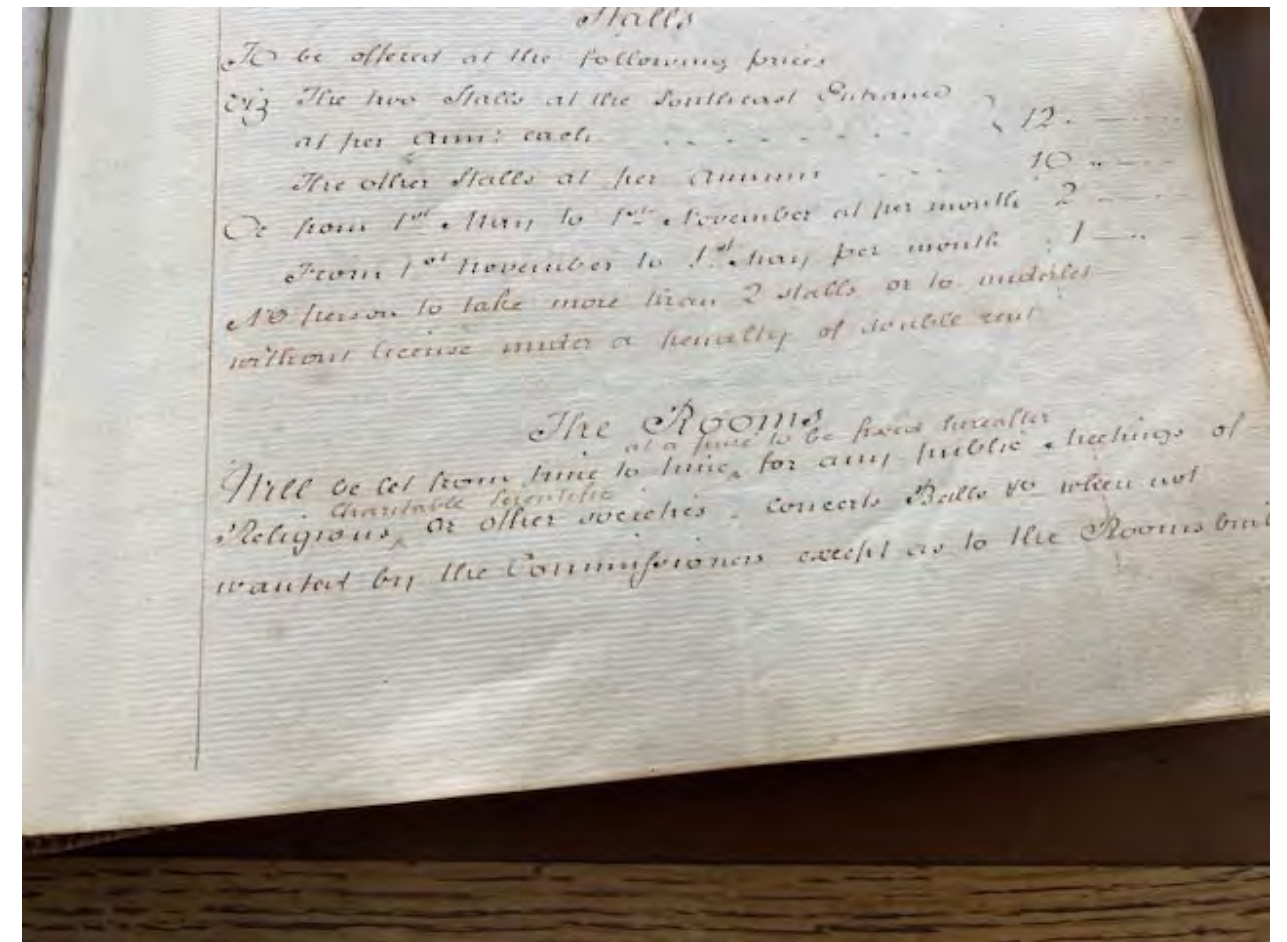 Stalls
To be offered at the following prices
viz The two Stalls at the Southeast Entrance
at per Ann: each - - - - - - - - 12. - - -
The other Stalls at per Annum - - - 10 " - - -
Or from 1st May to 1st November at per month 2 - - - -
From 1st November to 1st May per month . 1 - - -
No person to take more than 2 stalls or to underlet
without license under a penalty of double rent
The Rooms
at a price to be fixed hereafter
Will be let from time to time ‸ for any public Meetings of
Charitable Scientific
Religious ‸ or other societies - Concerts Balls &c when not
wanted by the Commissioners except as to the Rooms